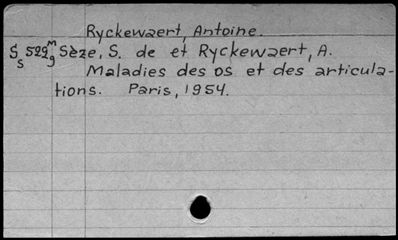 Ryckewaert, Antoine.
S 529 M Sèze, S. de et Ryckewaert, A.
S 9 Maladies des os et des articula-
tions. Paris, 1954.